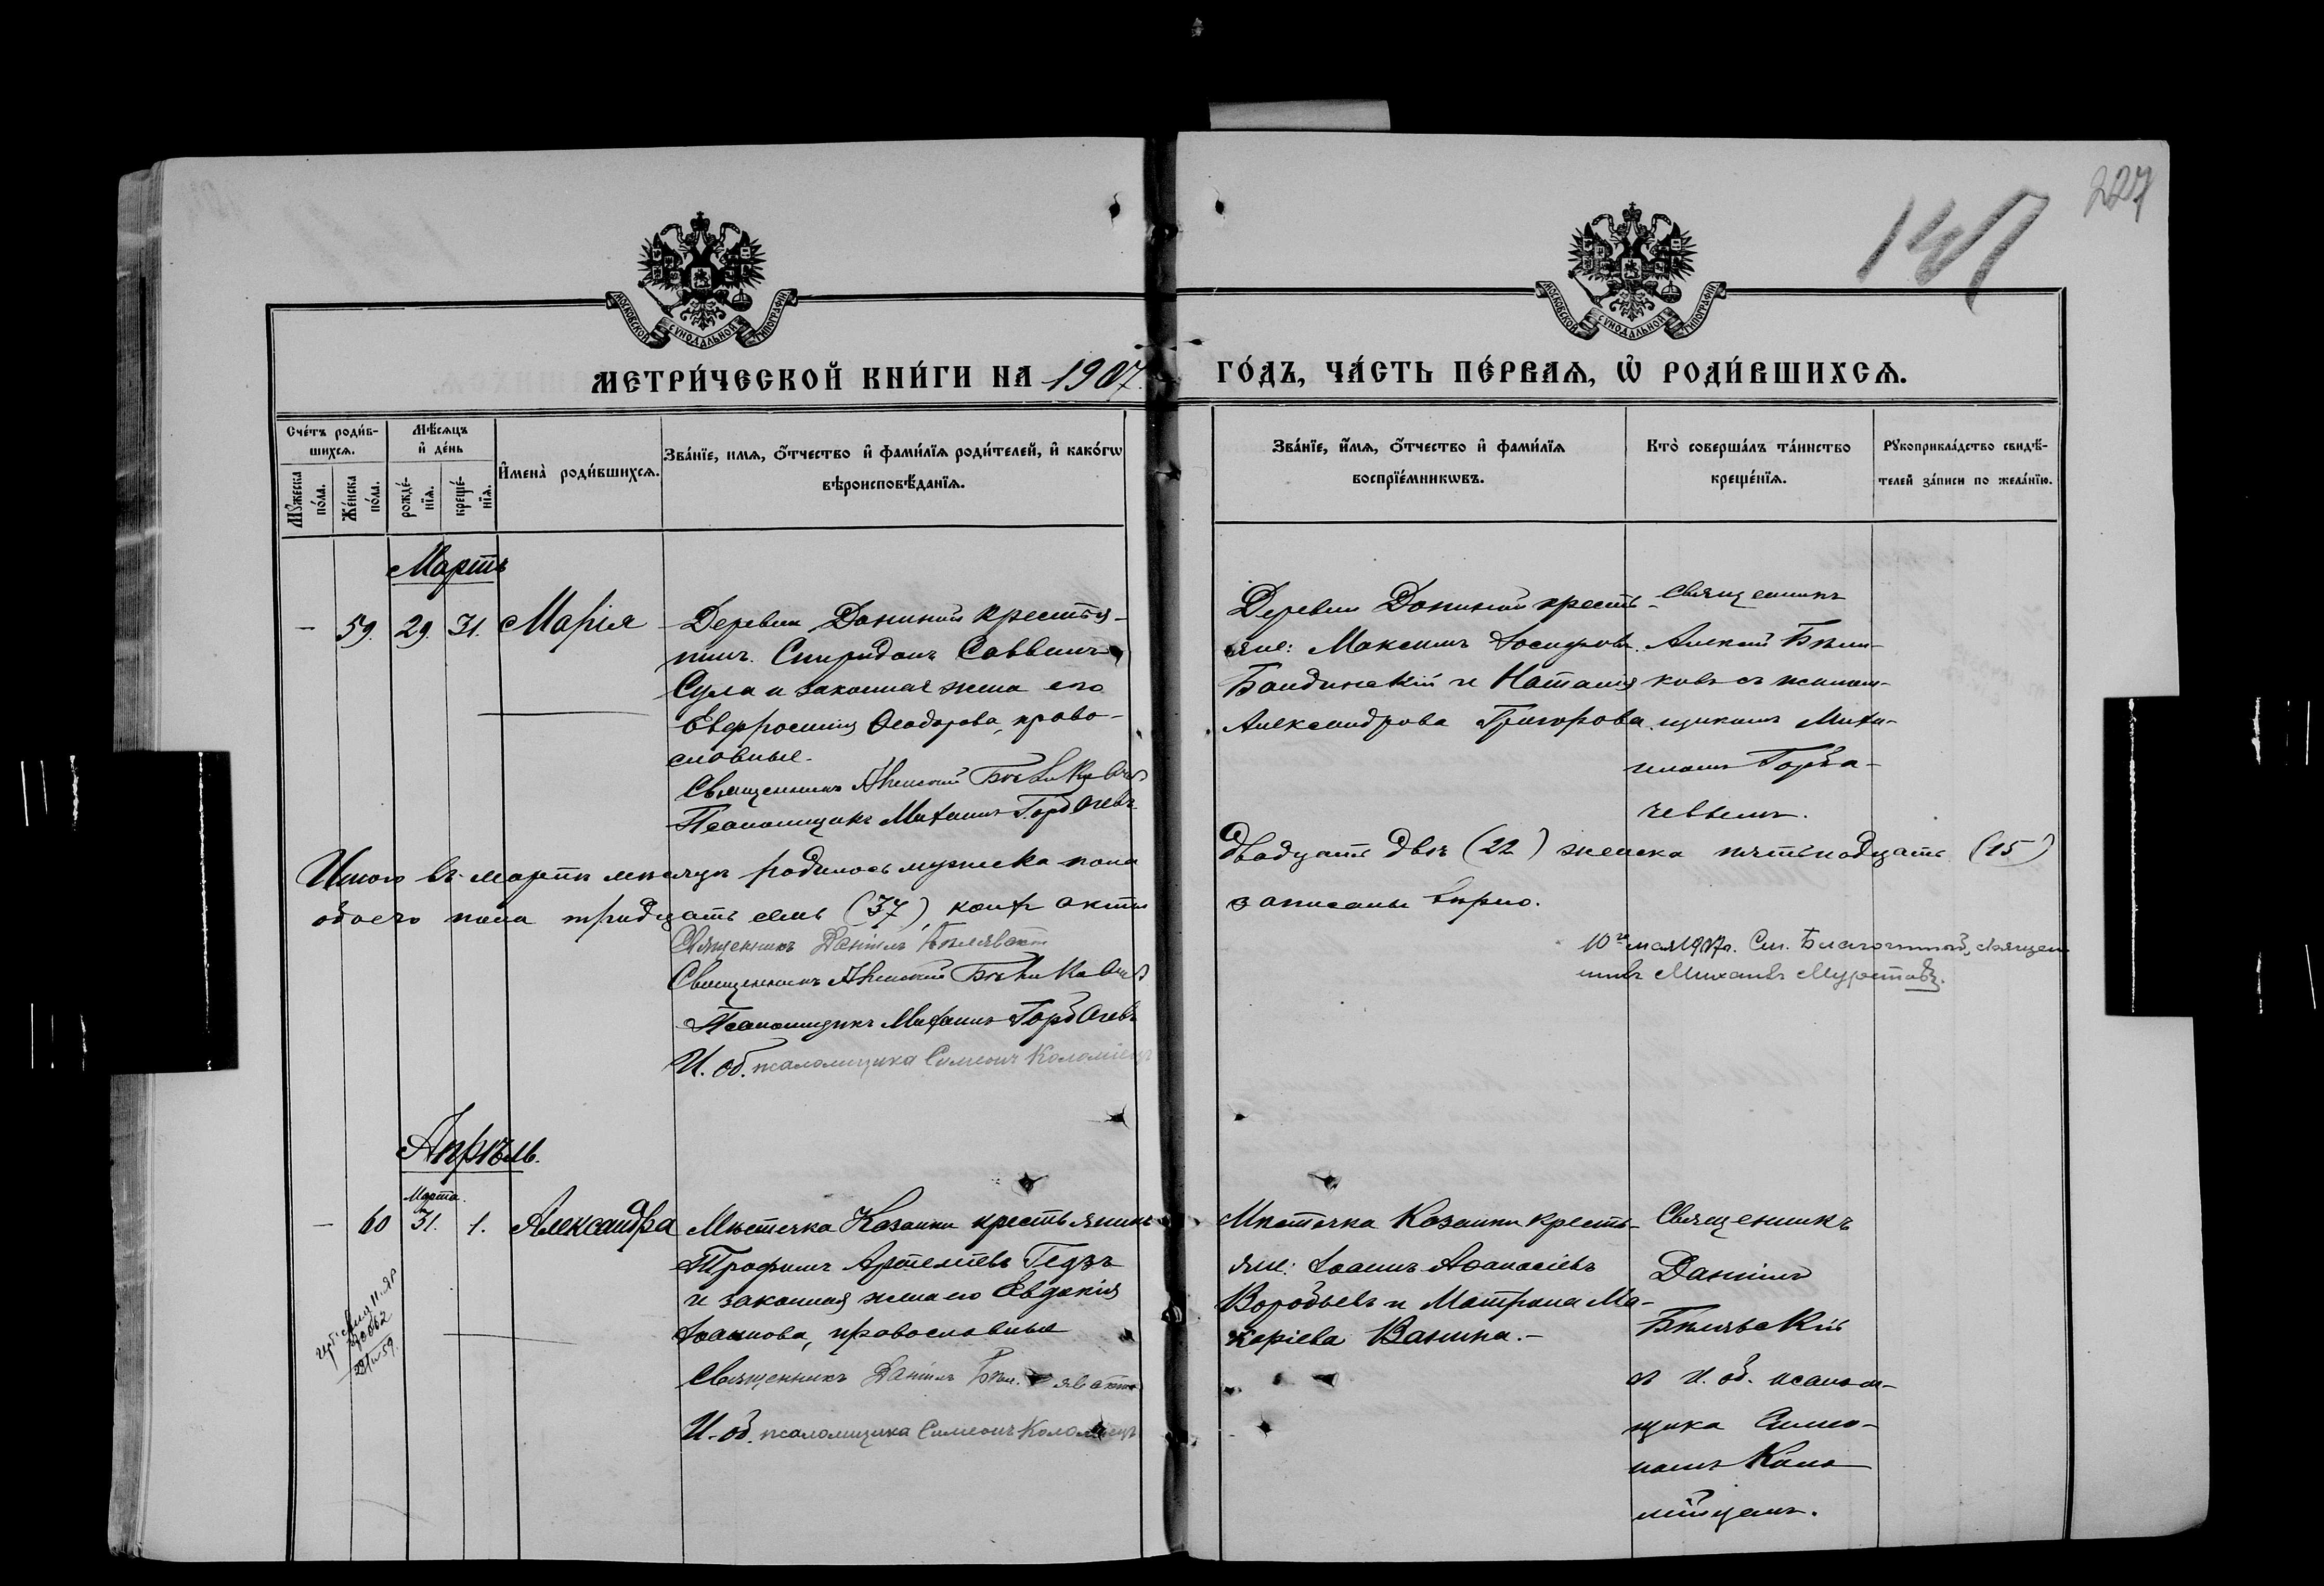 227
МОСКОВСКОЙ СѴНОДАЛЬНОЙ ТИПОГРАФІИ
МОСКОВСКОЙ СѴНОДАЛЬНОЙ ТИПОГРАФІИ
МЕТРИ́ЧЕСКОЙ КНИ́ГИ НА 1907
ГО́ДЪ, ЧА́СТЬ ПЕ́РВАѦ, Ѡ҆ РОДИ́ВШИХСѦ.
Сче́тъ роди́в-
шихсѧ.
Мꙋ́жеска по́ла.
Же́нска по́ла.
Мѣ́сѧцъ и҆ де́нь
рожде́-
нїѧ.
креще́-
нїѧ.
И҆мена̀ роди́вшихсѧ.
Зва́нїе, имѧ, ѻ҆́тчество и҆ фами́лїѧ роди́телей, и҆ како́гѡ
вѣроисповѣ́данїѧ.
Зва́нїе, и҆́мѧ, ѻ҆́тчество и҆ фами́лїѧ
воспрїе́мникѡвъ.
Кто̀ соверша́лъ та́инство
креще́нїѧ.
Рꙋкоприкла́дство свидѣ́-
телей за́писи по жела́нїю.
Мартъ
— 59. 29. 31. Марія
Деревни Дониной крестья-
нинъ Спиридонъ Саввинъ
Сула и законная жена его
Евфросинія Ѳеодорова, право-
славные.
Священникъ Алексій Бѣликовъ
Псаломщикъ Михаилъ Горбачевъ
Деревни Дониной кресть-
яне: Максимъ Іосифовъ
Бандинскій и Наталія
Александрова Григорова.
Священникъ
Алексій Бѣли-
ковъ съ псалом-
щикомъ Миха-
иломъ Горба-
чевымъ.
Итого въ мартѣ мѣсяцѣ родилось мужеска пола
двадцать два (22) женска пятьнадцать (15)
обоего пола тридцать семь (37), кои акты
записаны вѣрно.
Священникъ Даніилъ Бѣлявскій
Священникъ Алексій Бѣликовъ
Псаломщикъ Михаилъ Горбачевъ
И. об. псаломщика Симеонъ Коломіецъ
10го мая 1907 г. См. Благочинный, священ
никъ Михаилъ
Апрѣль.
Марта
— 60 31. 1. Александра
Мѣстечка Казанки крестьянинъ
Трофимъ Артеміевъ Гедзъ
и законная жена его Евдокія
Іоаннова, православные
Священникъ Даніилъ Бѣлявскій
И. об. псаломщика Симеонъ Коломіецъ
Мѣстечка Казанки кресть-
яне: Іоаннъ Аѳанасіевъ
Воробьевъ и Матрона Ма-
каріева Ванина.—
Священникъ
Даніилъ
Бѣлявскій
съ и. об. псалом-
щика Симео-
номъ Коло-
мійцемъ.